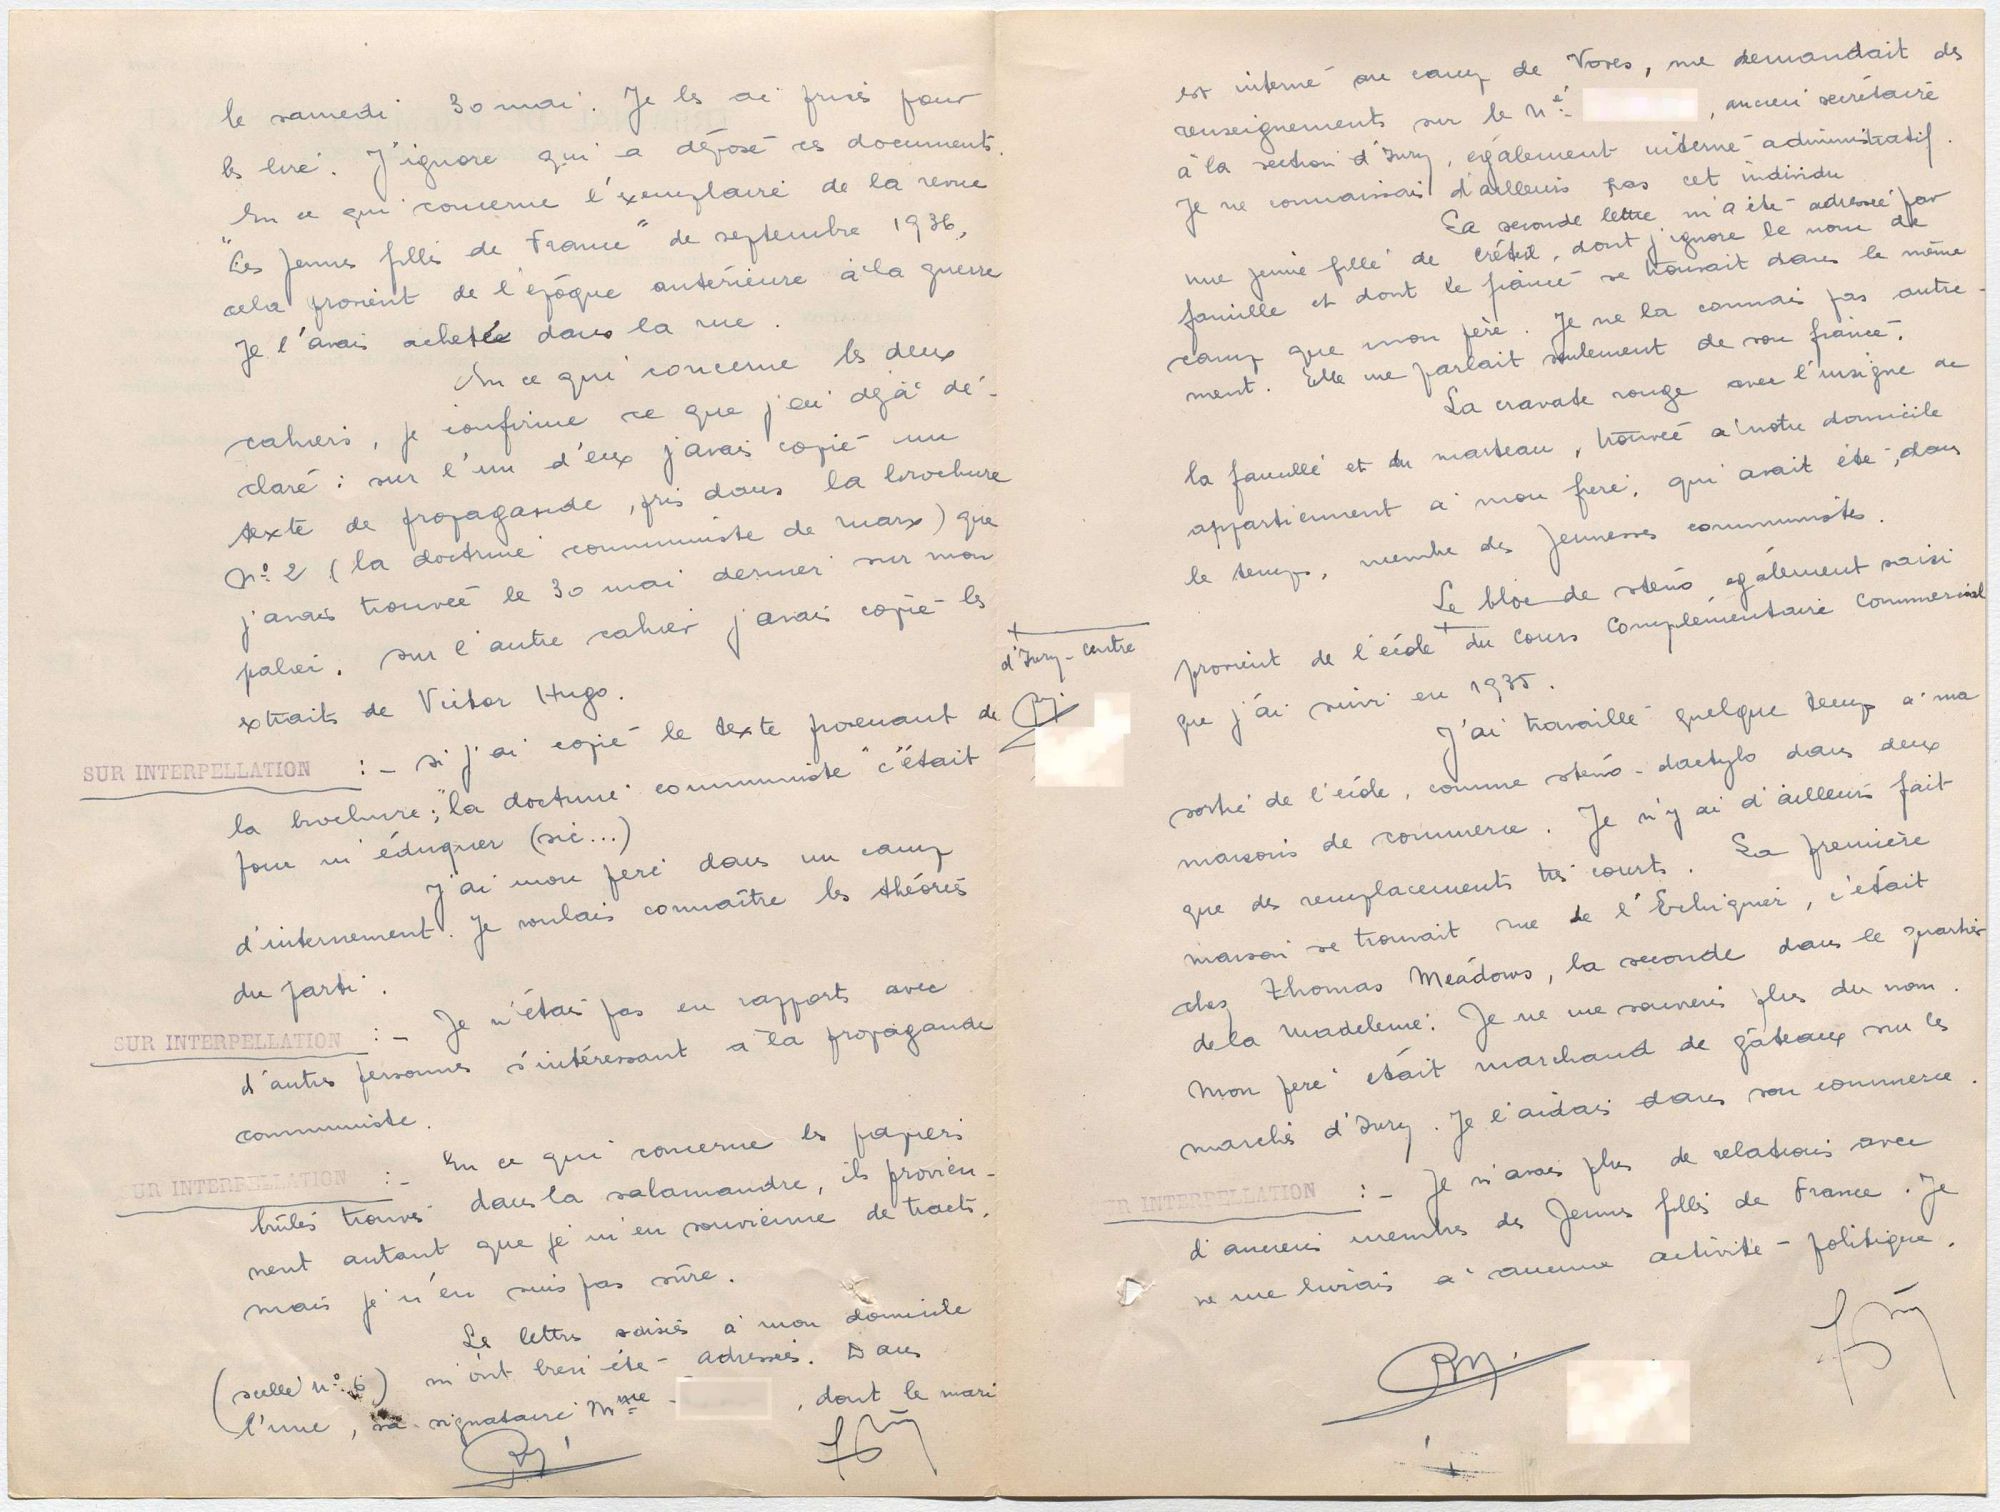 le samedi 30 mai. Je les ai prises pour
les lire. J'ignore qui a déposé ces documents.
En ce qui concerne l'exemplaire de la revue
"Les Jeunes filles de France" de septembre 1936,
cela provient de l'époque antérieure à la guerre
Je l'avais achetée dans la rue.
En ce qui concerne les deux
cahiers, je confirme ce que j'ai déjà dé-
claré : sur l'un d'eux j'avais copié un
texte de propagande, pris dans la brochure
N° 2 (la doctrine communiste de Marx) que
j'avais trouvée le 30 mai dernier sur mon
palier. sur l'autre cahier j'avais copié les
extraits de Victor Hugo.
SUR INTERPELLATION :- si j'ai copié le texte provenant de
la brochure : "la doctrine communiste" c'était
pour m'éduquer (sic...)
J'ai mon père dans un camp
d'internement. Je voulais connaître les théories
du parti.
SUR INTERPELLATION :- Je n'étais pas en rapports avec
d'autres personnes s'intéressant à la propagande
communiste.
SUR INTERPELLATION :- En ce qui concerne les papiers
brûlés trouvés dans la salamandre, ils provien-
nent autant que je m'en souvienne de tracts.
mais je n'en suis pas sûre.
Les lettres saisies à mon domicile
(scellé n° 6) m'ont bien été adressées. Dans
l'une, sa signataire Mme , dont le mari
est interné au camp de Voves, me demandait des
renseignements sur le né , ancien secrétaire
à la section d'Ivry, également interné administratif.
Je ne connaissais d'ailleurs pas cet individu
La seconde lettre m'a été adressée par
une jeune fille de Créteil, dont j'ignore le nom de
famille et dont le fiancé se trouvait dans le même
camp que mon père. Je ne la connais pas autre-
ment. Elle me parlait seulement de son fiancé.
La cravate rouge avec l'insigne de
la faucille et du marteau, trouvée à notre domicile
appartiennent à mon frère, qui avait été, dans
le temps, membre des Jeunesses communistes.
Le bloc de sténo également saisi
provient de l'école du Cours Complémentaire Commercial
d'Ivry-Centre
que j'ai suivi en 1935.
J'ai travaillé quelque temps à ma
sortie de l'école, comme sténo-dactylo dans deux
maisons de commerce. Je n'y ai d'ailleurs fait
que des remplacements très courts. La première
maison se trouvait rue de l'Echiquier, c'était
chez Thomas Meadows, la seconde dans le quartier
de la Madeleine. Je ne me souviens plus du nom.
Mon père était marchand de gâteaux sur les
marchés d'Ivry. Je l'aidais dans son commerce.
SUR INTERPELLATION :- Je n'avais plus de relations avec
d'anciens membres des Jeunes filles de France. Je
ne me livrais à aucune activité politique.